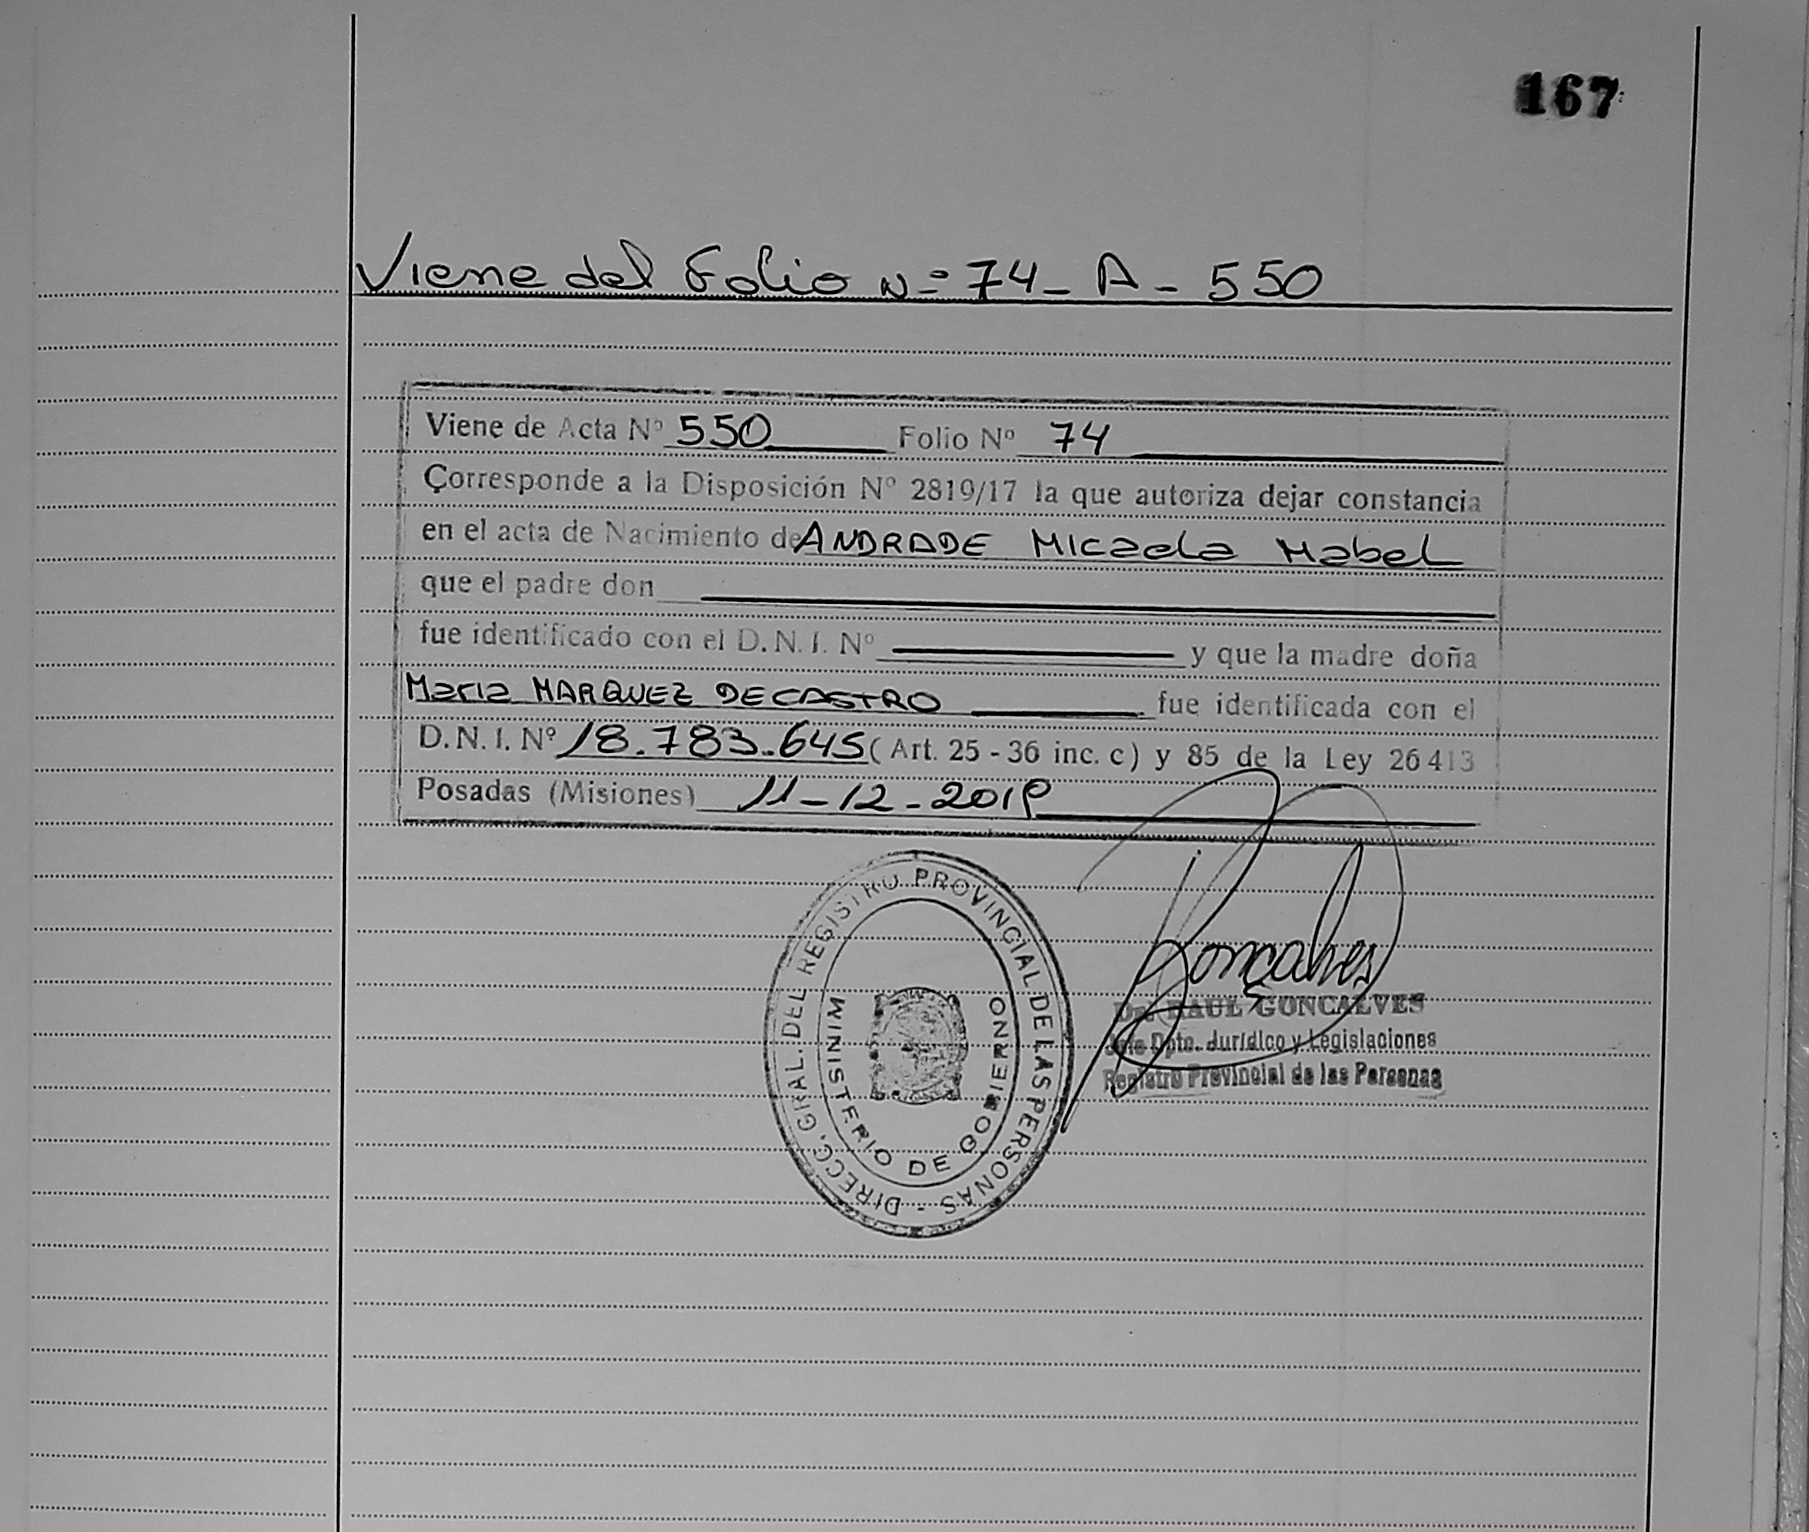 167
Viene del Folio Nº 74_ A _ 550
Viene de Acta Nº 550 Folio Nº 74
Corresponde a la Disposición Nº 2819/17 la que autoriza dejar constancia
en el acta de Nacimiento de ANDRADE Micaela Mabel
que el padre don
fue identificado con el D.N.I. Nº y que la madre doña
Maria MARQUEZ DE CASTRO fue identificada con el
D.N.I. Nº 18.783.645 (Art. 25 - 36 inc. c) y 85 de la Ley 26413
Posadas (Misiones) 11-12-2019
DIRECC. GRAL. DEL REGISTRO PROVINCIAL DE LAS PERSONAS -
MINISTERIO DE GOBIERNO
Gonçalves
Dr. RAUL GONCALVES
Jefe Dpto. Jurídico y Legislaciones
Registro Provincial de las Personas